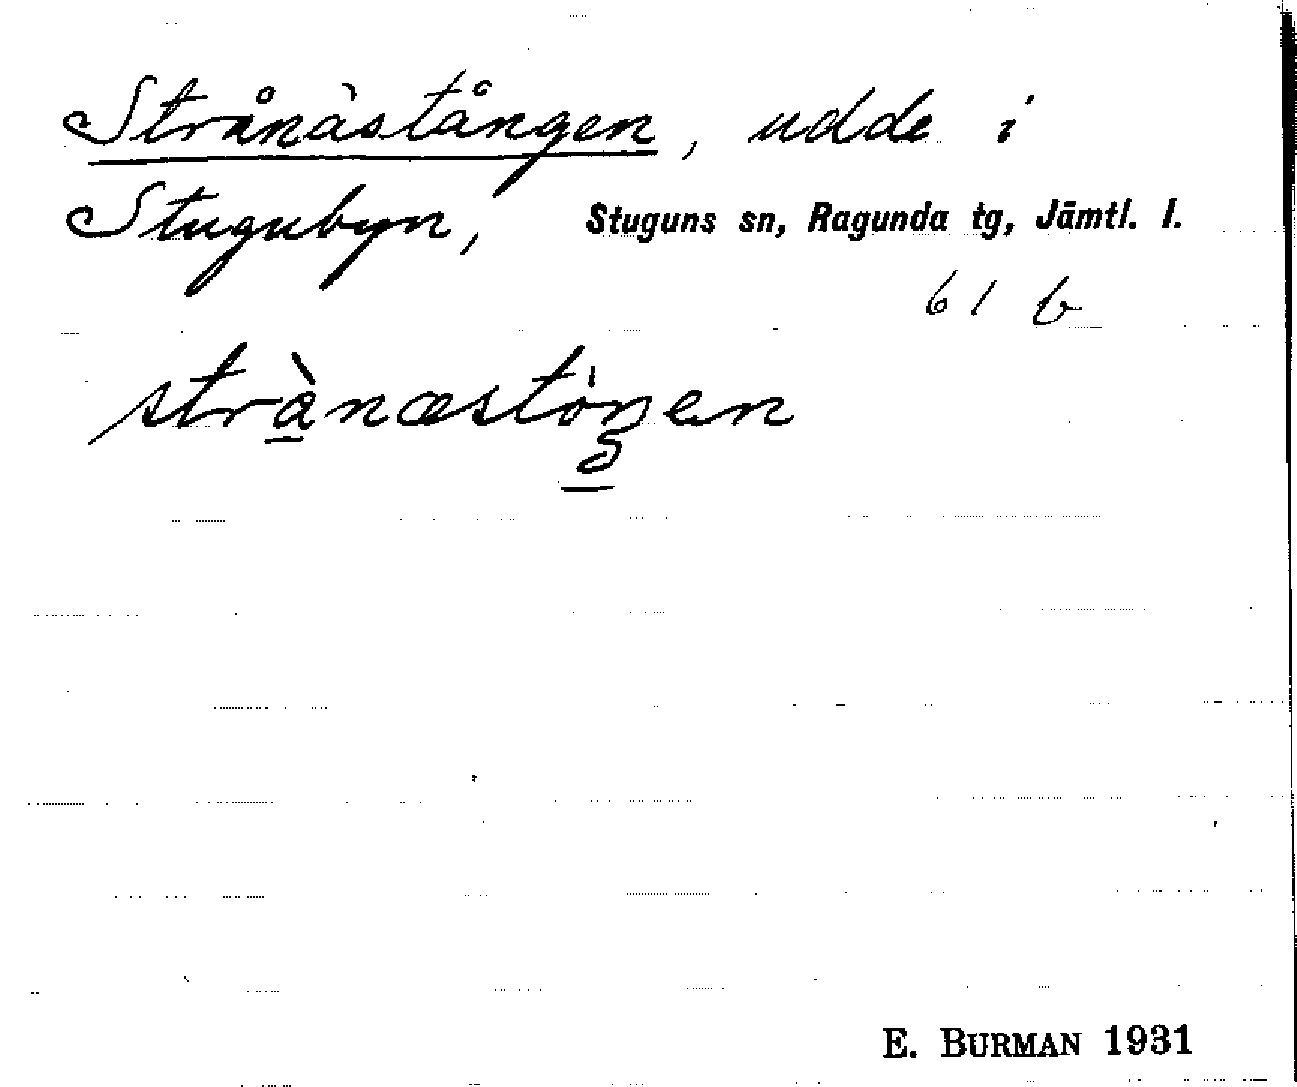 Strånästången, udde i
Stugubyn, Stuguns sn, Ragunda tg, Jämtl. l.
61 b
strànæstöŋen
E. BURMAN 1931